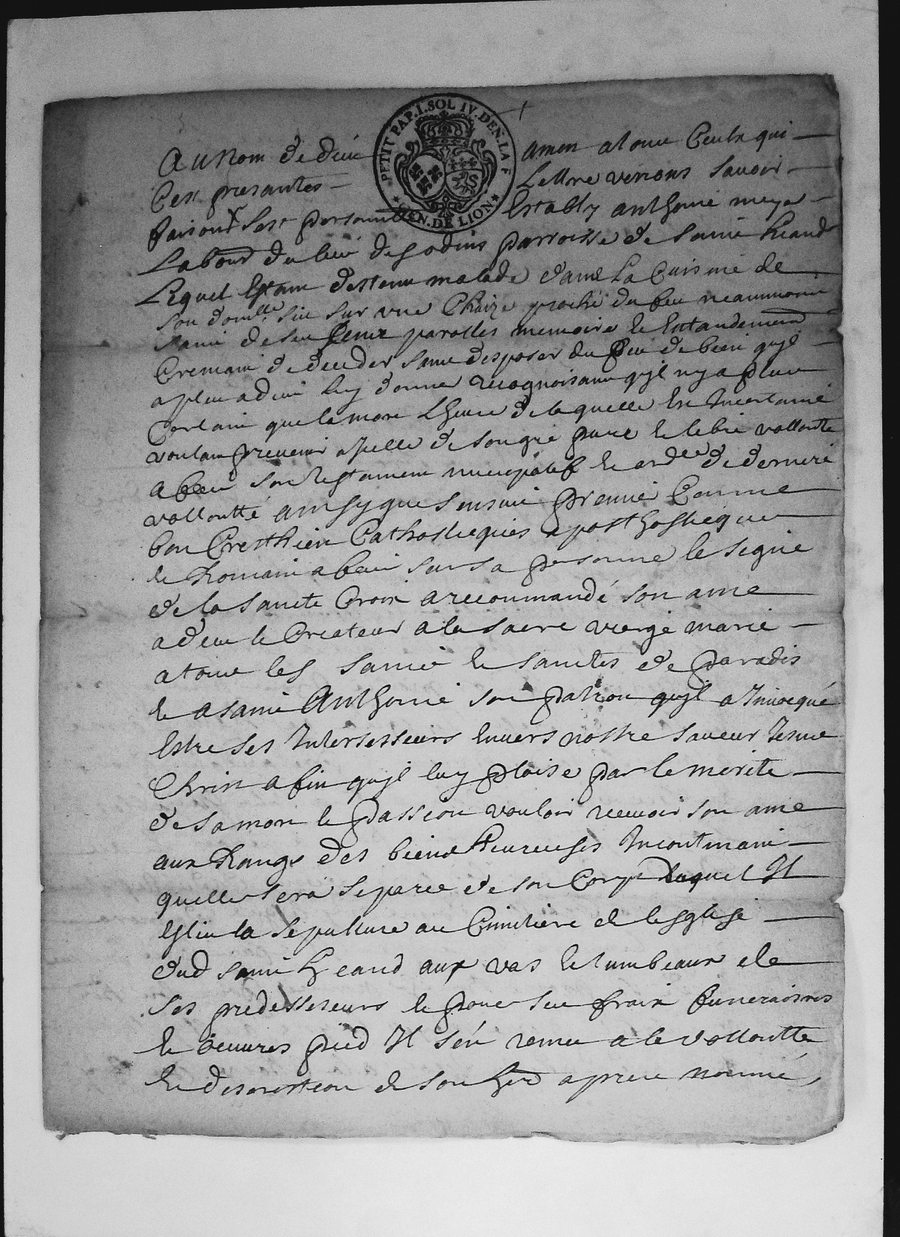 PETIT PAP. I. SOL IV. DEN. LA F
GEN. DE LION
Au Nom de dieu amen a tous Ceulx qui
Ces presantes Lettre verrons savoir
faisons Sest personn Estably anthoine meya
Labour du lieu de godins parroisse de saint heand
Lequel Estant destenu malade dans La Cuisine de
son domille sis sur une Chaize proche du feu neanmoins
saint de ses sens parolles memoire Et Entandement
Cremant de deceder sans desposer du peu de bien qu'jl
a pleu a dieu Luy donne recognoisant qu'jl ny a plus
Certain que la mort Lheure de laquelle Est Incertaine
voulant prevenir Icelle de son gre pure Et libre vollontte
a faict son testament nuncupatif Et ordce de derniere
vollontté ainsy que sensuit premier Comme
bon Cresthien Catholicques apostholicque
Et Romain a faict sur sa personne le signe
de la sancte Croix a recommandé son ame
a dieu le Createur a la sacre vierge marie
a tous les saincts Et sanctes de paradis
Et a saint Anthoine son patron qu'jl a Invocqué
Estre ses Intersesseurs Envers nostre sauveur Jesus
Christ afin qu'jl luy plaise par le merite
de sa mort Et passion vouloir recevoir son ame
aux Rangs des biend heureuses Incontinant
quelle sera separee de son Corps Duquel Il
Eslis la sepulture au Cimitiere de lesglise
dud saint heand aux vas Et tumbeaux de
ses predesseseurs Et pour ses fraix funeraires
Et oeuvres pied Il sen remet a la vollontte
Et discrestion de son her apres nommé